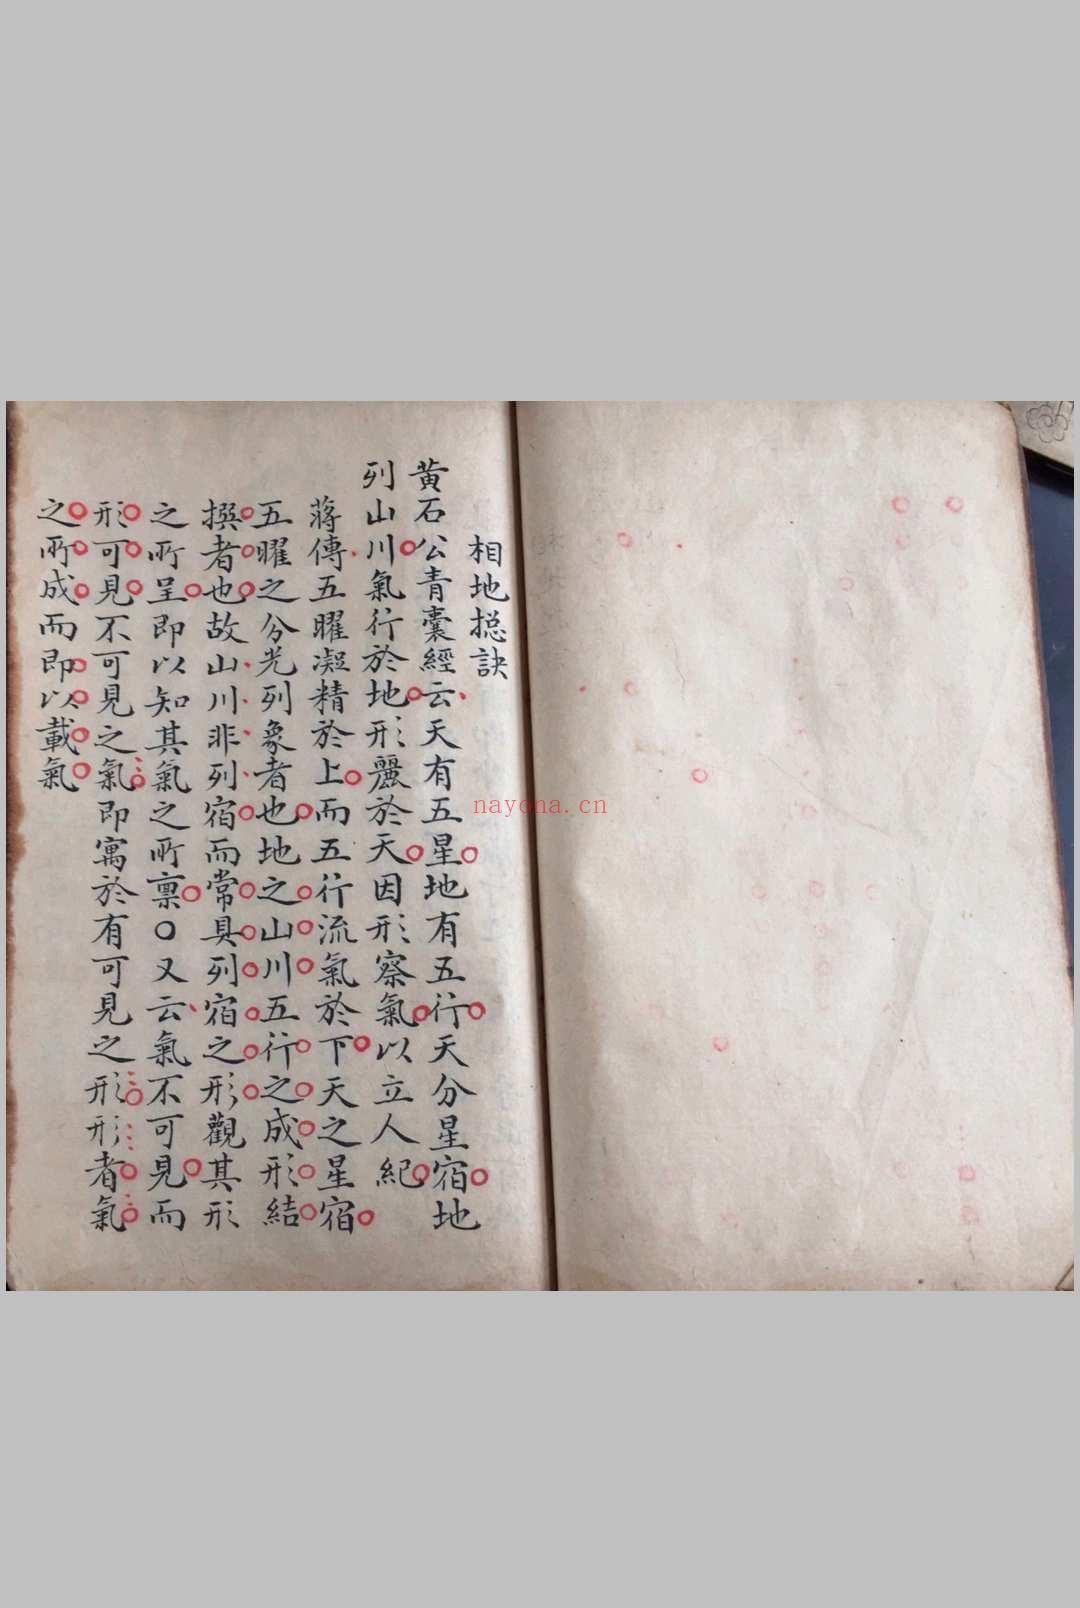 相地摠訣
黄石公青囊經云天有五星地有五行天分星宿地
列山川氣行於地形麗於天因形察氣以立人紀
蔣傳五曜凝精於上而五行流氣於下天之星宿
五曜之分光列象者也地之山川五行之成形結
撰者也故山川非列宿而常具列宿之形觀其形
之所呈即以知其氣之所禀〇又云氣不可見而
形可見不可見之氣即寓於有可見之形形者氣
之所成而即以載氣
nayona.cn